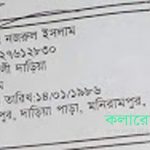 নজরুল ইসলাম
২৭৬১২৮৩০
লী দাড়িয়া
ম
তারিখ:১৪/০১/১৯৮৬
পুর, দাড়িয়া পাড়া, মনিরামপুর,
কলারো